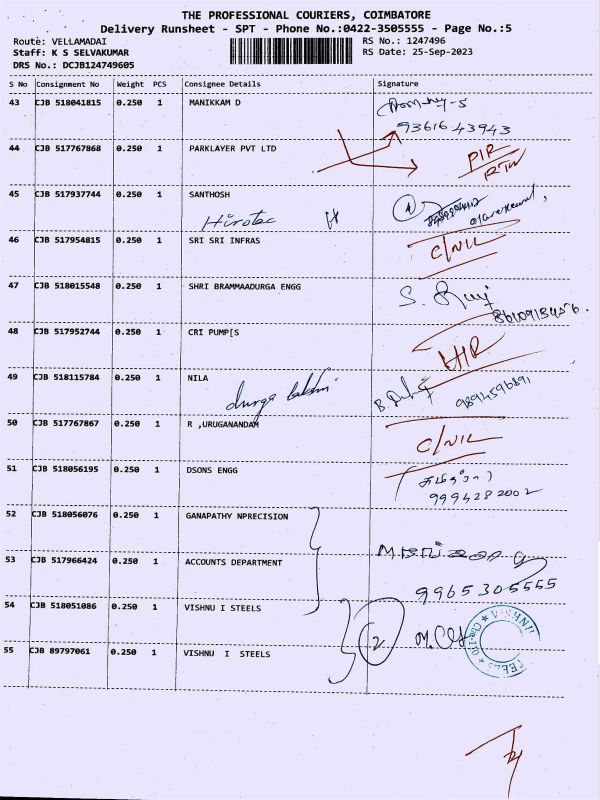 THE PROFESSIONAL COURIERS, COIMBATORE
Delivery Runsheet - SPT - Phone No.:0422-3505555 - Page No.:5
Route: VELLAMADAI
RS No.: 1247496
Staff: K S SELVAKUMAR
RS Date: 25-Sep-2023
DRS No.: DCJB124749605
S No Consignment No Weight PCS Consignee Details Signature
43 CJB 518041815 0.250 1 MANIKKAM D
9361643943
44 CJB 517767868 0.250 1 PARKLAYER PVT LTD
45 CJB 517937744 0.250 1 SANTHOSH
Hirotec H
46 CJB 517954815 0.250 1 SRI SRI INFRAS C/NIL
47 CJB 518015548 0.250 1 SHRI BRAMMAADURGA ENGG
48 CJB 517952744 0.250 1 CRI PUMP[S
49 CJB 518115784 0.250 1 NILA
durga lakshmi
50 CJB 517767867 0.250 1 R ,URUGANANDAM C/NIL
51 CJB 518056195 0.250 1 DSONS ENGG
9994282002
52 CJB 518056076 0.250 1 GANAPATHY NPRECISION
53 CJB 517966424 0.250 1 ACCOUNTS DEPARTMENT
9965305555
54 CJB 518051086 0.250 1 VISHNU I STEELS
2
55 CJB 89797061 0.250 1 VISHNU I STEELS